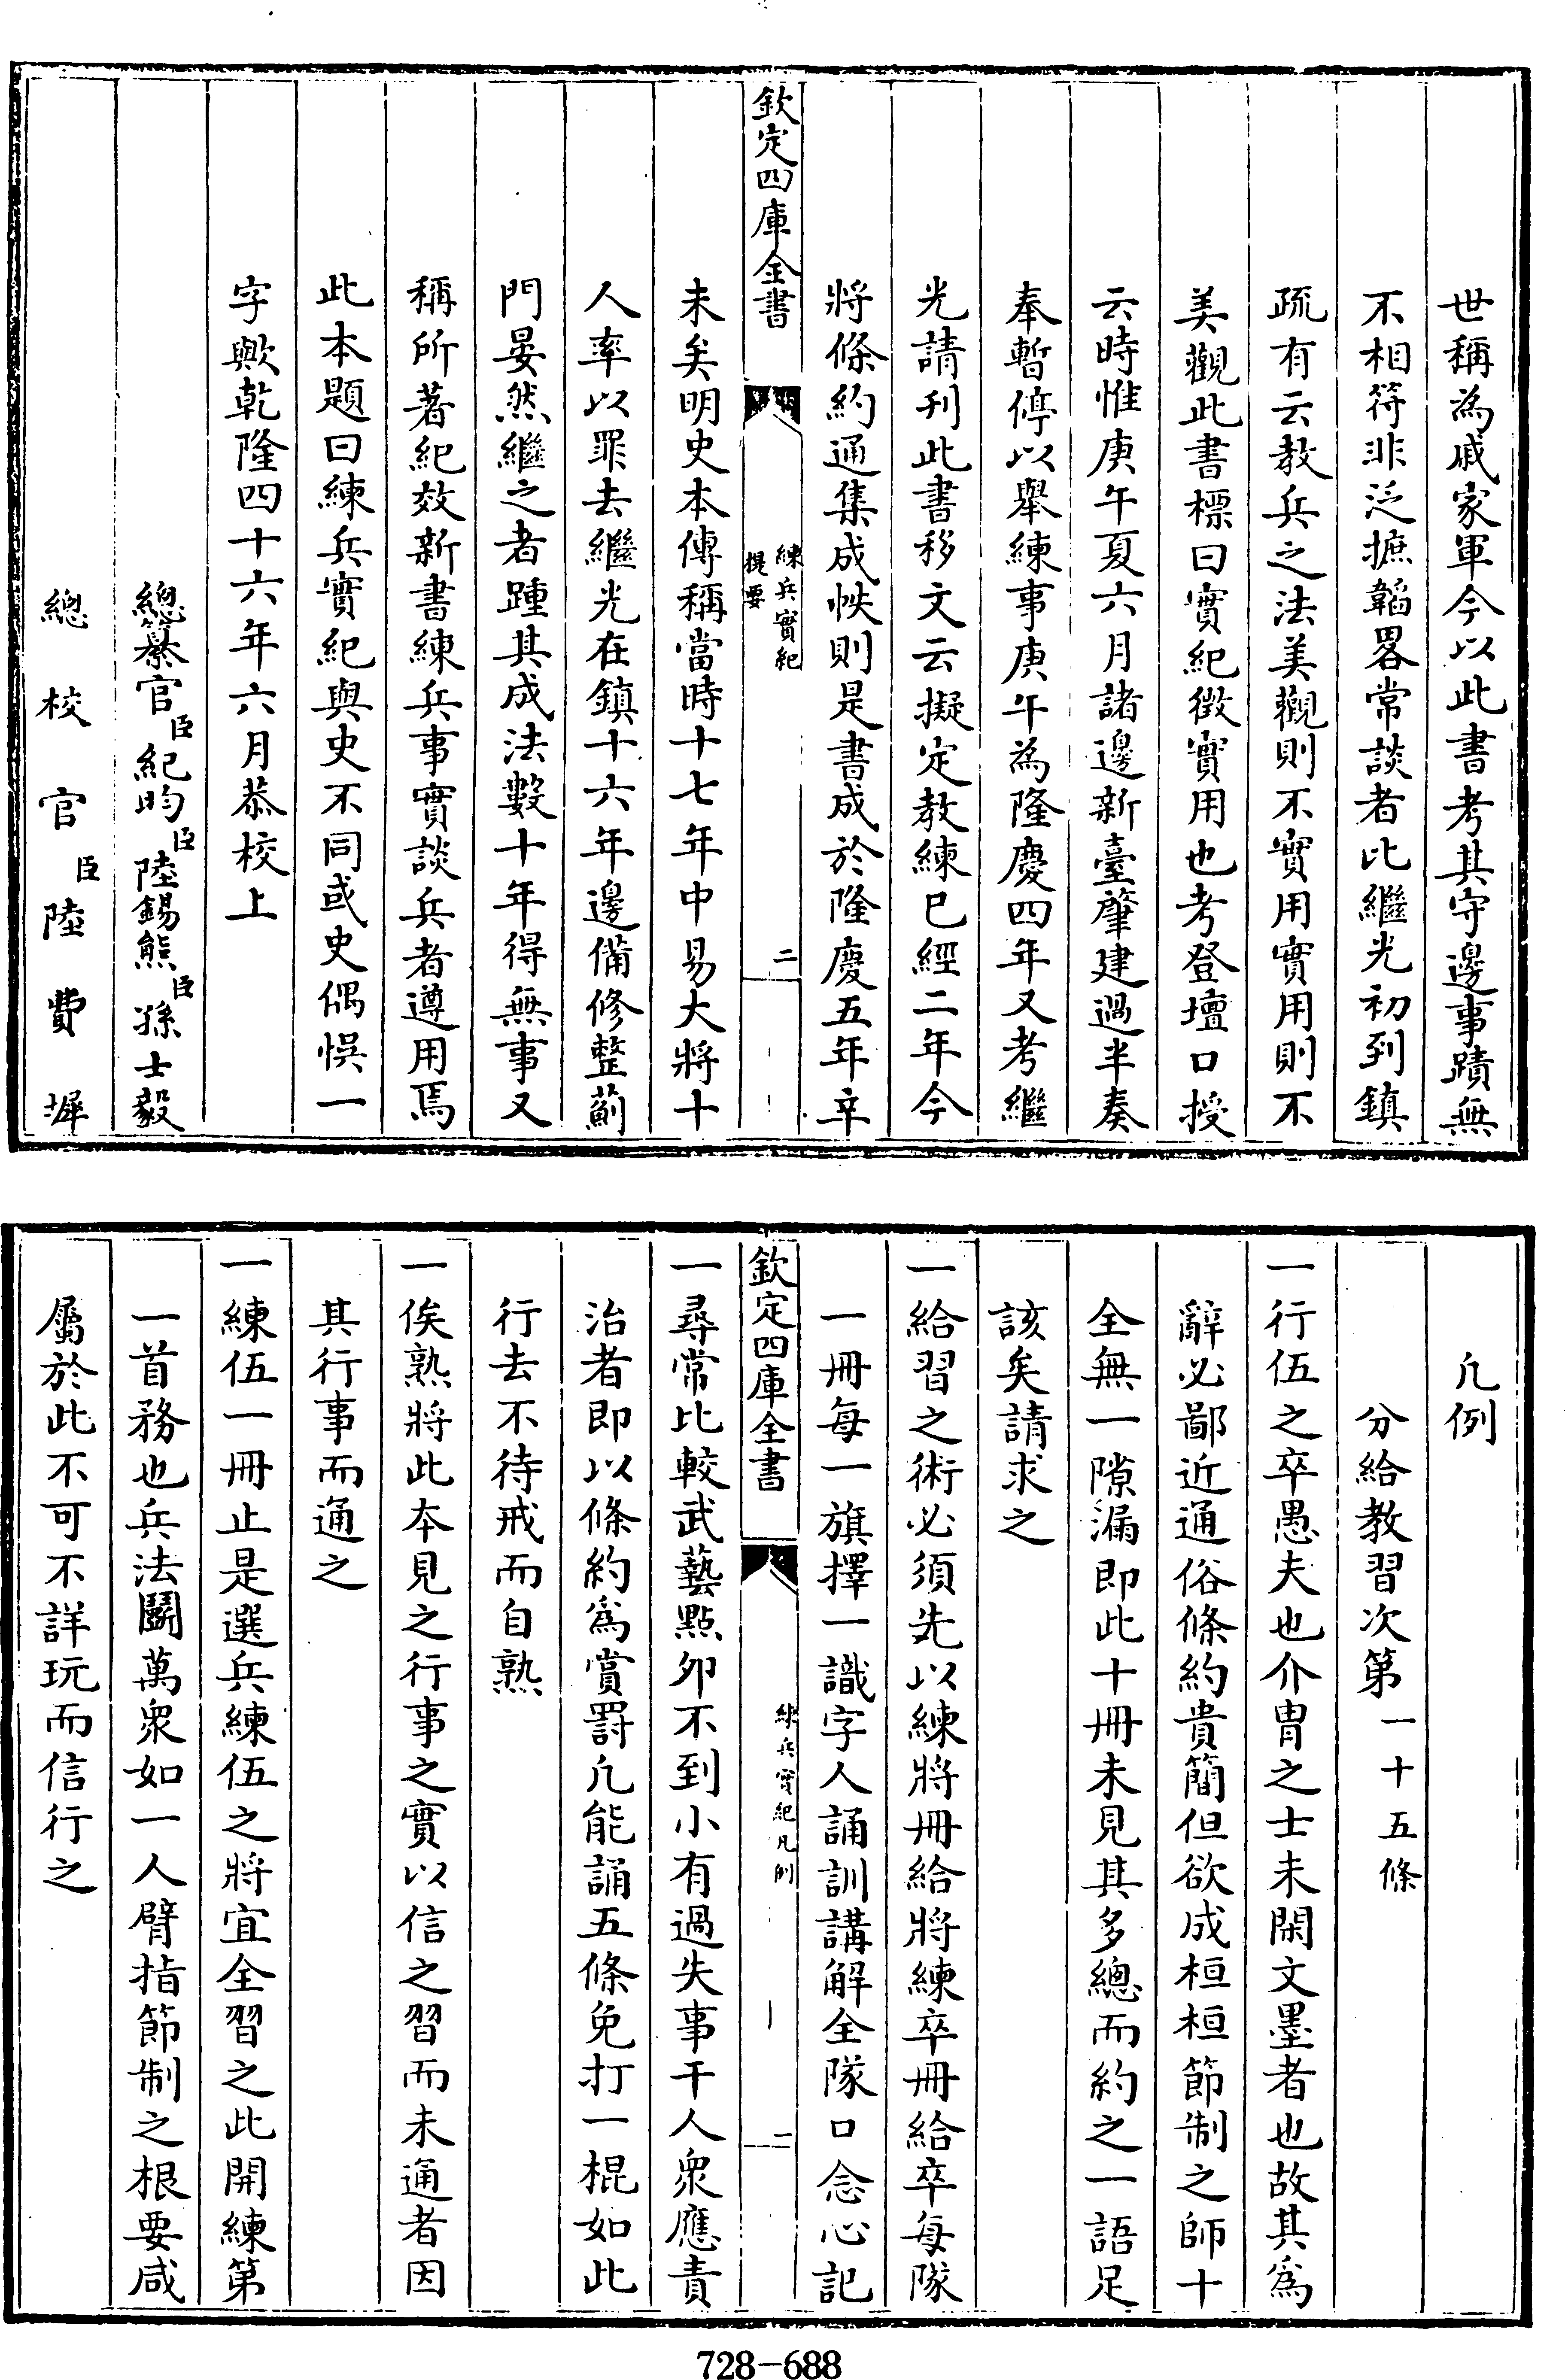 世稱為戚家軍今以此書考其守邊事蹟無
不相符非泛摭韜畧常談者比繼光初到鎮
疏有云教兵之法美觀則不實用實用則不
美觀此書標曰實紀徴實用也考登壇口授
云時惟庚午夏六月諸邊新臺肇建過半奏
奉暫停以舉練事庚午為隆慶四年又考繼
光請刋此書移文云擬定教練已經二年今
將條約通集成帙則是書成於隆慶五年辛
欽定四庫全書
練兵實紀
提要
二
未矣明史本傳稱當時十七年中易大將十
人率以罪去繼光在鎮十六年邊備修整薊
門晏然繼之者踵其成法數十年得無事又
稱所著紀效新書練兵事實談兵者遵用焉
此本題曰練兵實紀與史不同或史偶悞一
字歟乾隆四十六年六月恭校上
總纂官臣紀昀臣陸錫熊臣孫士毅
總校官臣陸費墀
凡例
分給教習次第一十五條
一行伍之卒愚夫也介胄之士未閑文墨者也故其爲
辭必鄙近通俗條約貴簡但欲成桓桓節制之師十
全無一隙漏即此十冊未見其多總而約之一語足
該矣請求之
一給習之術必須先以練將冊給將練卒冊給卒每隊
一冊每一旗擇一識字人誦訓講解全隊口念心記
欽定四庫全書
練兵實紀凡例
一
一尋常比較武藝點卯不到小有過失事干人衆應責
治者即以條約爲賞罰凡能誦五條免打一棍如此
行去不待戒而自熟
一俟熟將此本見之行事之實以信之習而未通者因
其行事而通之
一練伍一冊止是選兵練伍之將宜全習之此開練第
一首務也兵法鬭萬衆如一人臂指節制之根要咸
屬於此不可不詳玩而信行之
728-688